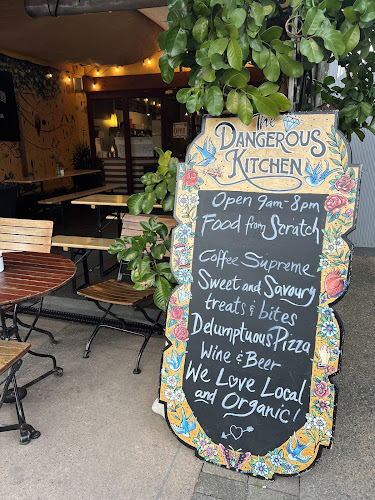 The
DANGEROUS
KITCHEN
Open 9am-8pm
Food from Scratch
Coffee Supreme
Sweet and Savoury
treats & bites
Delumptuous Pizza
Wine & Beer
We Love Local
and Organic!